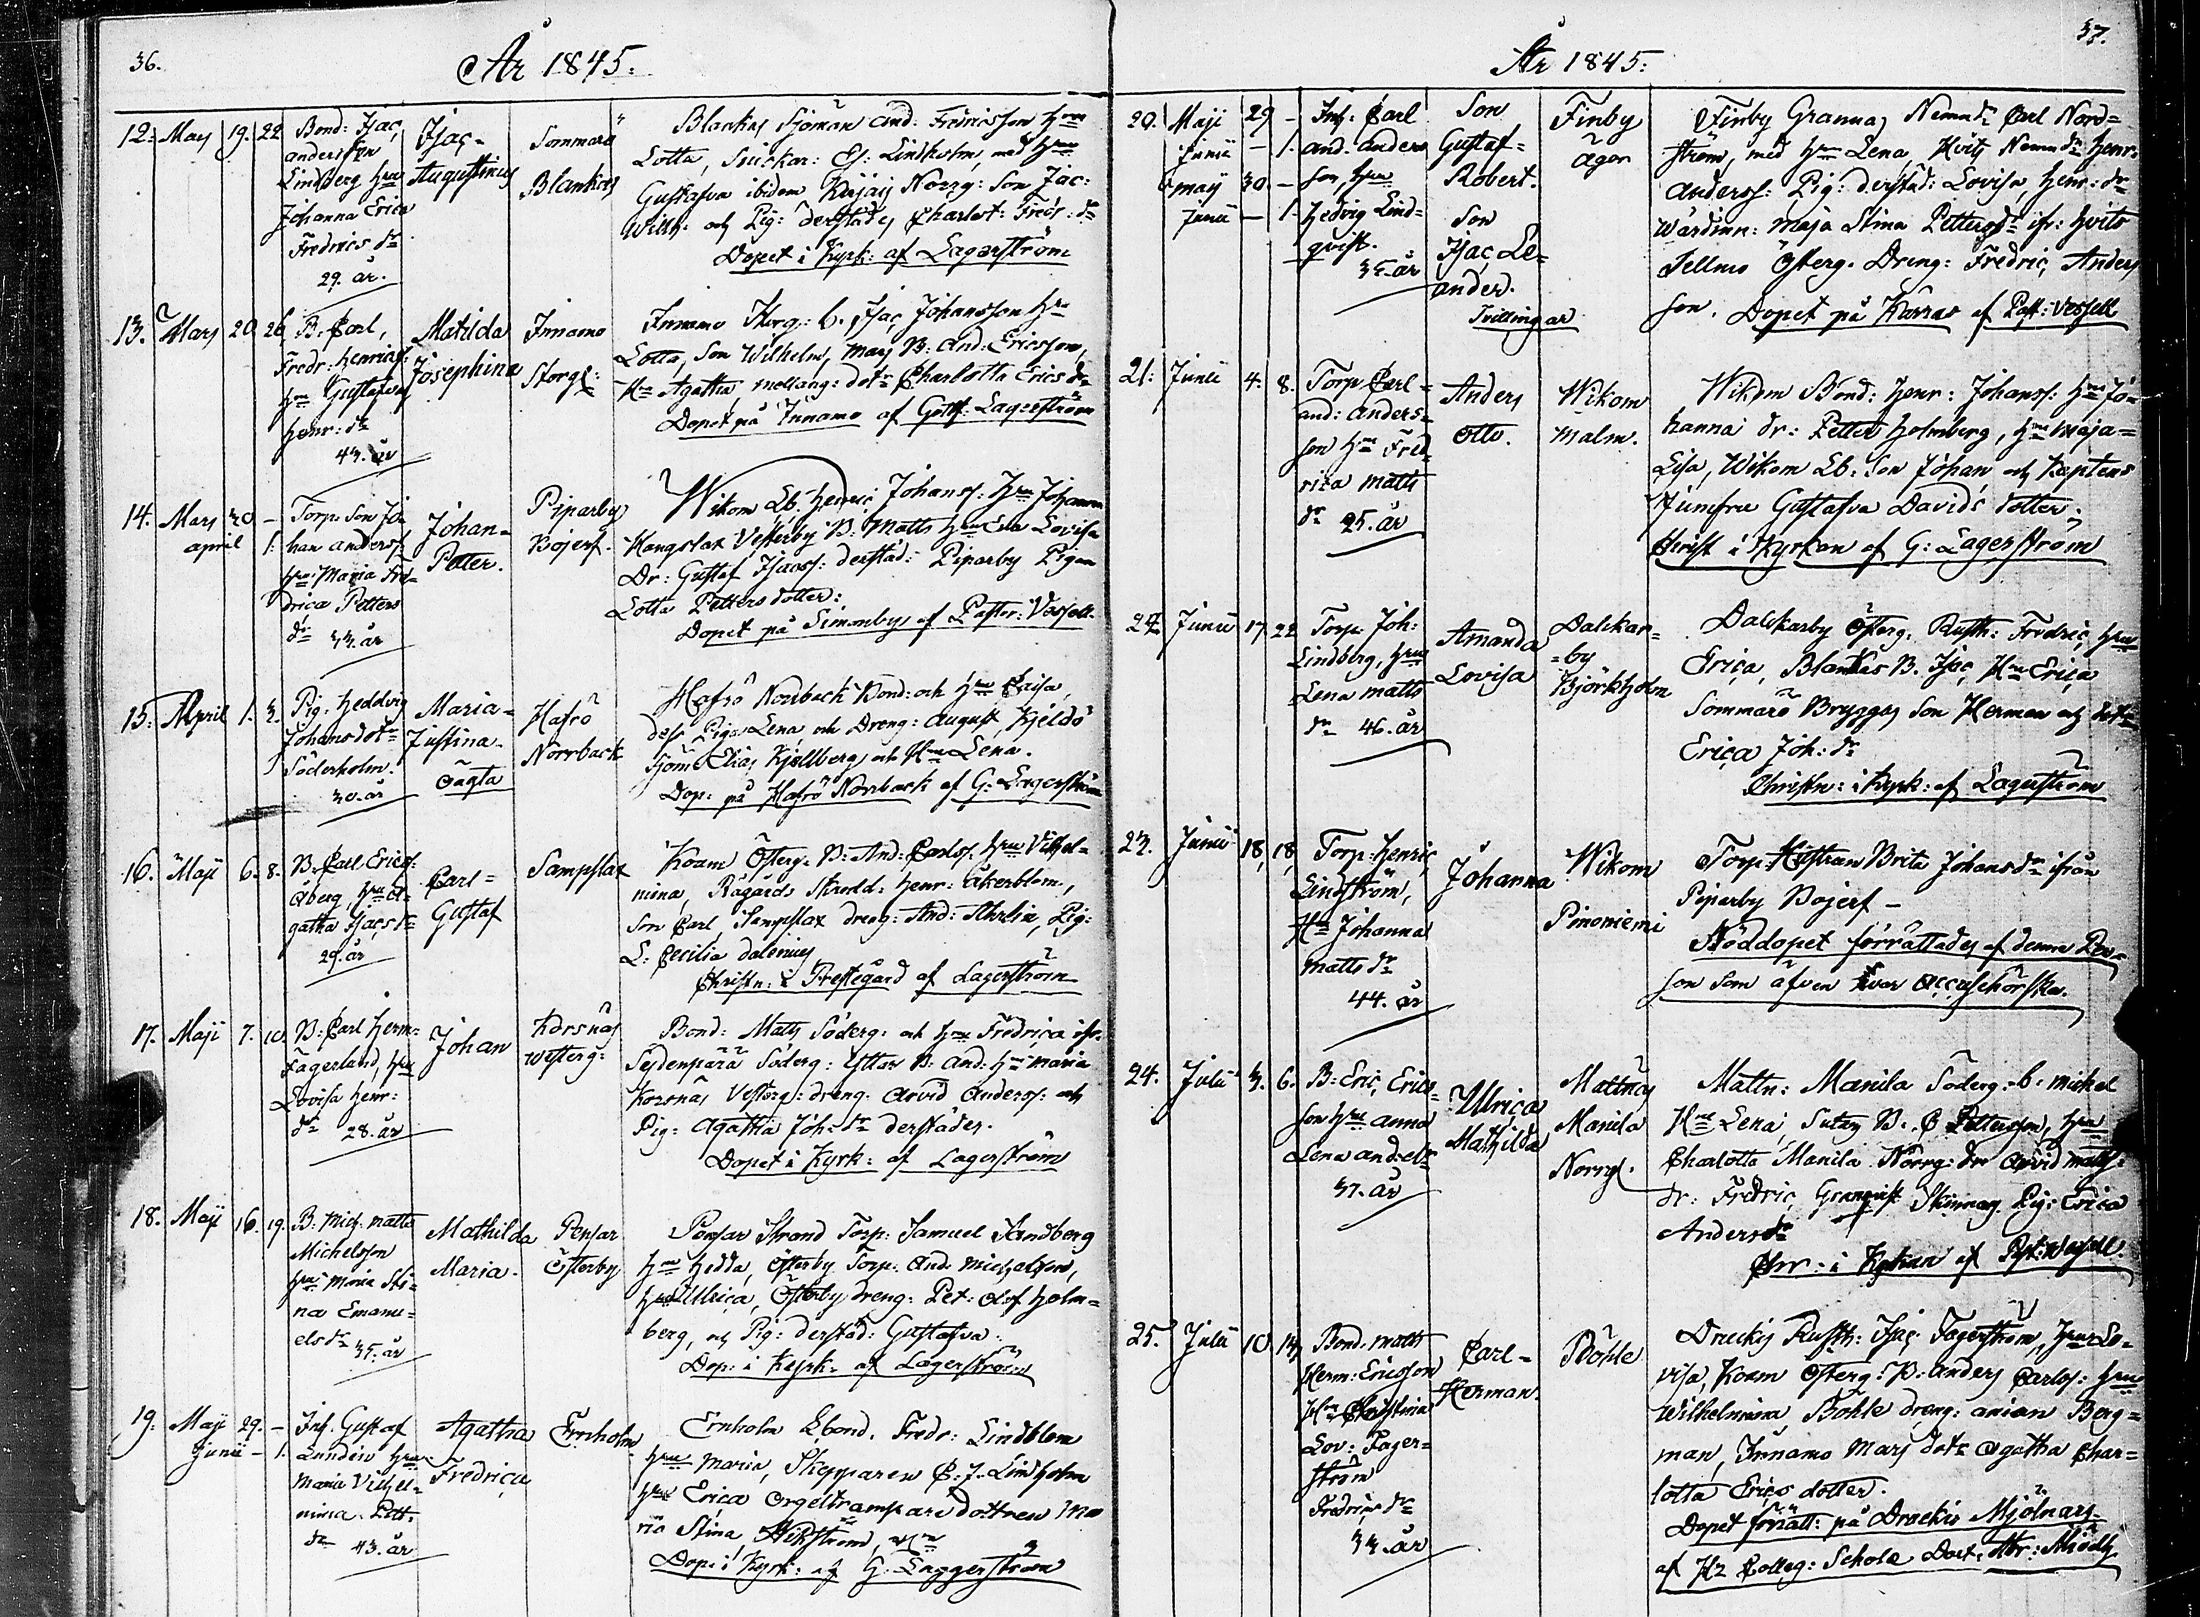 36.
År 1845.
12. Mars 19. 22
Bond: Isac
andersson
Lindberg Hru
Johanna Erica
Fredrics dr
29. år.
Isac-
Augustinus
Sommarö
Blankas
Blankas Sjöman And: Fredricsson Hru
Lotta, Snickar: Lindholm, med Hru
Gustafva ibidem Norrg: Son Jac:
Wilh: och Pig: derstädes Charlot: Fredr: dr
Dopet i Kyrk: af Lagerström
13. Mars 20 26
B. Carl
Fredr: Henricss:
Hru Gustafva
Henr: dr
43. år
Matilda
Josephina
Innamo
Storgl:
Innamo Storg: b. Isac Johansson Hru
Lotta, Son Wilhelm, Mars B: And: Ericsson,
Hru Agatha, mellang: dotr Charlotta Erics dr
Dopet på Innamo af Gust: Lagerström
14. Mars 30 -
april 1.
Torp: Son Jo-
han anderss:
Hru: Maria Fre-
drica Petters
dr 33. år
Johan-
Petter.
Piparby
Böjers.
Wikom Lb. Henric Johanss: Hru Johanna
Kangslax Vesterby B: Matts Hru Eva Lovisa
Dr: Gustaf Isacss: derstäd: Piparby Pigan
Lotta Petters dotter:
Dopet på Simonby af Pastor: Vessell
15. April 1. 3.
Pig. Heddvig
Johansdotr
Söderholm.
30. år
Maria-
Justina.
Oägta
Hafrö
Norrback
Hafrö Norrback Bond: och Hru Caisa,
dess Piga Lena, och Dreng: August, Kjeldö
Sjöm: Elias Kjellberg och Hru Lena.
Dop: på Hafrö Norrback af G: Lagerström
16. Maji 6. 8.
B. Carl Ericss:
Åberg, Hru A-
gatha Isacs dr
29. år
Carl-
Gustaf
Sampslax
Koam Österg: B: And: Carlss: Hru Vilhel-
mina, Rågårds Skredd: Henr: Åkerblom,
Son Carl, Sampslax dreng: And: Pig:
L: Cecilia dalenius
Christn: i Prestegård af Lagerström
17. Maji 7. 10.
B: Carl Herm:
Fagerlund, Hru
Lovisa Henr:
dr 28. år
Johan
Korsnäs
Westerg:
Bond: Mats Söderg: och Hru Fredrica ifr.
Söderg: Yttar B. And: Hru Maria
Korsnäs Vesterg: dreng: Arvid Anderss: och
Pig: Agatha Joh: dr derstädes.
Dopet i Kyrk: af Lagerström
18. Maji 16. 19.
B: Mich: matts
Michelsson
Hru Maria Sti-
na Emanu-
els dr 35. år
Mathilda
Maria.
Pensar
Österby
Pensar Strand Torp: Samuel Sandberg
Hru Hedda, Österby Torp: And: Michelsson,
Hru Ulrica, Österby dreng: Pet: Olof Holm-
berg, och Pig: derstäd: Gustafva.
Dop: i Kyrk: af Lagerström
19. Maji 29. -
Junii - 1.
Inh: Gustaf
Lundin Hru
Maria Vilhel-
mina Pett:
dr 43. år
Agatha
Fredrica
Ernholm
Ernholm Lbond: Fredr: Lindblom
Hru Maria, Skepparen C: J. Lindholm
Hru Erica Orgeltrampare dottren Ma
ria Stina Wikström,
Dop: i Kyrk: af G. Laggerström
37.
År 1845:
20. Maji 29 -
Junii - 1.
maij 30. -
junii - 1.
Inh: Carl
And: anders
son, Hru
Hedvig Lind-
qvist.
35. år
Son
Gustaf-
Robert.
Son
Isac Le-
ander.
Tvillingar
Finby
Äger
Finby Grannas Nemnd: Carl Nord-
ström, med Hru Lena, Hvits Nemndr Henr:
Anderss: Pig: derstäd: Lovisa, Henr: dr
Wärdinn: Maja Stina Pettersdr ifr: Hvits
Jellmo Österg. Dreng: Fredric Anders
son. Dopet på Kärras af Past: Vessell
21. Junii 4. 8.
Torp Carl-
And: Anders-
son Hru Fred
rica matts
dr 25. år
Anders
Otto.
Wikom
Malm.
Wikom Bond: Henr: Johanss: Hru Jo-
hanna dr: Petter Holmberg, Hru Maja-
Lisa, Wikom Lb: Son Johan och Kaptens
Jumfru Gustafva Davids dotter.
Christ i Kyrkan af G: Lagerström
22. Junii 17. 22
Torp: Joh:
Lindberg, Hru
Lena matts
dr 46. år
Amanda
Lovisa
Dalckar-
=by
Björkholm
Dalckarby Österg: Rusth: Fredric, Hru
Erica, Blankas B. Isac Hru Erica
Sommarö Bryggas Son Herman och dotr
Erica Joh: dr
Christn: i Kyrk: af Lagerström
23. Junii 18 18
Torp: Henric
Lindström,
Hru Johanna
Matts dr
44. år
Johanna
Wikom
Pinoniemi
Torp: Hustran Brita Johans dr ifrån
Piparby Böjers -
Nöddopet förrättades af denna Per-
son som äfven var Accuschörska.
24. Julii 3. 6.
B: Eric Erics-
son Hru anna
Lena and:dr
37. år
Ulrica
Mathilda
Mattnäs
Manila
Norrgl.
Mattn: Manila Söderg: b: Michel
Hru Lena, B. C Pettersson, Hru
Charlotta Manila Norrg: dr Arvid matts:
dr: Fredric Granqvist Skinnars Pig: Erica
Andersdr
Chr: i Kyrkan af Pst: Wessell
25. Julii 10. 13
Bond: Matts
Herm: Ericsson
Hru Christina
Lov: Fager-
ström
Fredrics dr
33. år
Carl-
Herman.
Böhle
Drackis Rusth: Isac Fagerström, Hru Lo-
visa, Koam Österg: B: Anders Carlss: Hru
Wilhelmina Böhle dreng: Berg-
man, Innamo Mars dotr Agatha Char-
lotta Erics dotter.
Dopet förrätt: på Drackis Mjölnars
af Hr Colleg: Schola Doct: